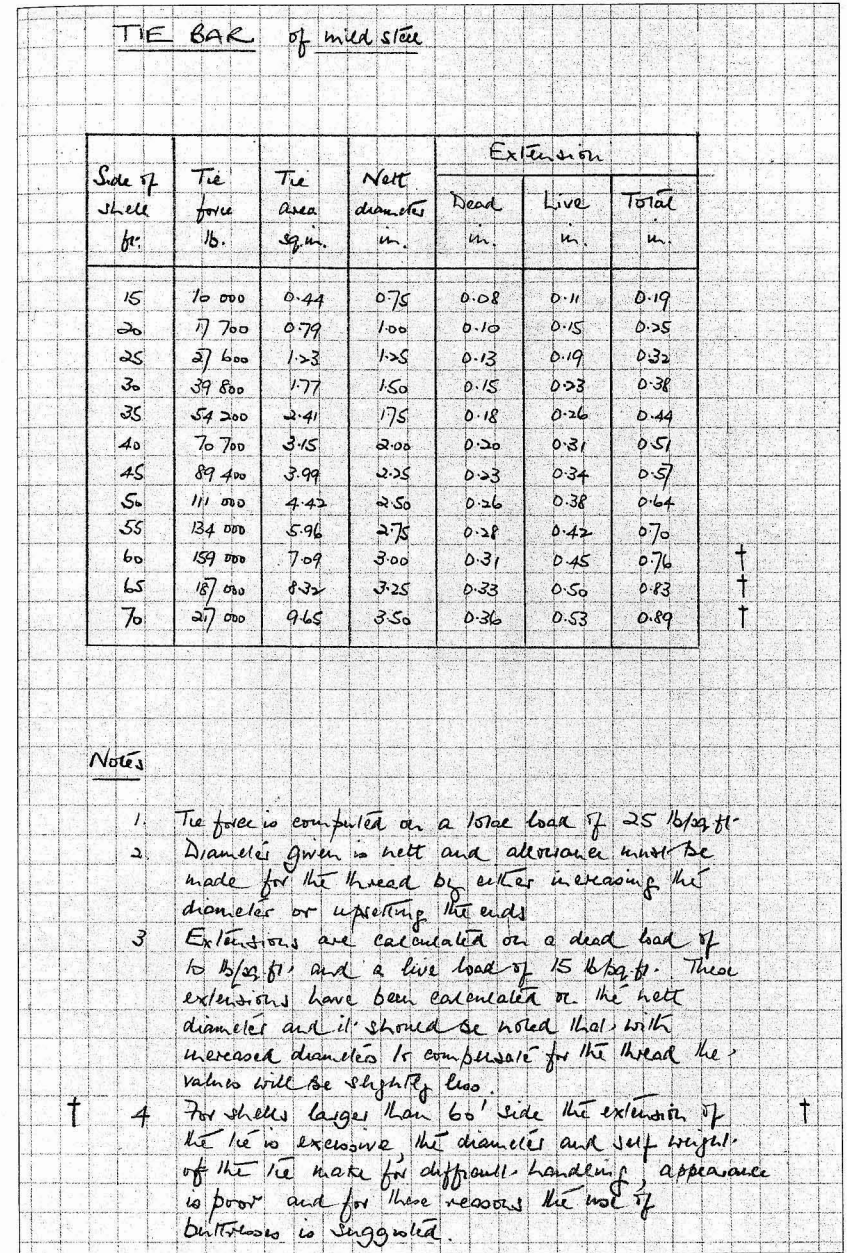 TIE BAR of mild steel
Extension
Side of shell ft. Tie force lb. Tie area sq.in. Nett diameter in. Dead in. Live in. Total in.
15 10 000 0.44 0.75 0.08 0.11 0.19
20 17 700 0.79 1.00 0.10 0.15 0.25
25 27 600 1.23 1.25 0.13 0.19 0.32
30 39 800 1.77 1.50 0.15 0.23 0.38
35 54 200 2.41 1.75 0.18 0.26 0.44
40 70 700 3.15 2.00 0.20 0.31 0.51
45 89 400 3.99 2.25 0.23 0.34 0.57
50 111 000 4.42 2.50 0.26 0.38 0.64
55 134 000 5.96 2.75 0.28 0.42 0.70
60 159 000 7.09 3.00 0.31 0.45 0.76 †
65 187 000 8.32 3.25 0.33 0.50 0.83 †
70 217 000 9.65 3.50 0.36 0.53 0.89 †
Notes
1. Tie force is computed on a total load of 25 lb/sq.ft.
2. Diameter given is nett and allowance must be
made for the thread by either increasing the
diameter or upsetting the ends
3 Extensions are calculated on a dead load of
10 lb/sq.ft. and a live load of 15 lb/sq.ft. These
extensions have been calculated on the nett
diameter and it should be noted that with
increased diameters to compensate for the thread the
values will be slightly less.
† 4 For shells larger than 60' side the extension of †
the tie is excessive, the diameter and self weight
of the tie make for difficult handling, appearance
is poor and for these reasons the use of
buttresses is suggested.